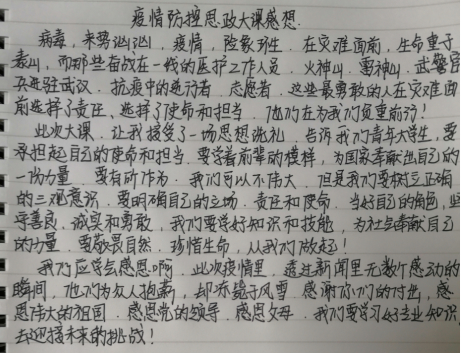 疫情防控思政大课感想
病毒,来势汹汹,疫情,险象环生。在灾难面前,生命重于
泰山,而那些奋战在一线的医护工作人员、火神山、雷神山、武警官
兵进驻武汉、抗疫中的逆行者、志愿者,这些最勇敢的人在灾难面
前选择了责任、选择了使命和担当。他们在为我们负重前行!
此次大课,让我接受了一场思想洗礼,告诉我们青年大学生,要
承担起自己的使命和担当,要学着前辈的模样,为国家奉献出自己的
一份力量,要有所作为。我们可以不伟大,但是我们要树立正确
的三观意识,要明确自己的立场、责任和使命,当好自己的角色,坚
守善良、诚实和勇敢,我们要学好知识和技能,为社会奉献自己
的力量,要敬畏自然,珍惜生命,从我们做起!
我们应学会感恩啊,此次疫情里,透过新闻里无数个感动的
瞬间,他们为众人抱薪,却亦毙于风雪,感谢你们的付出,感
恩伟大的祖国,感恩党的领导,感恩父母,我们要学习好专业知识,
去迎接未来的挑战!